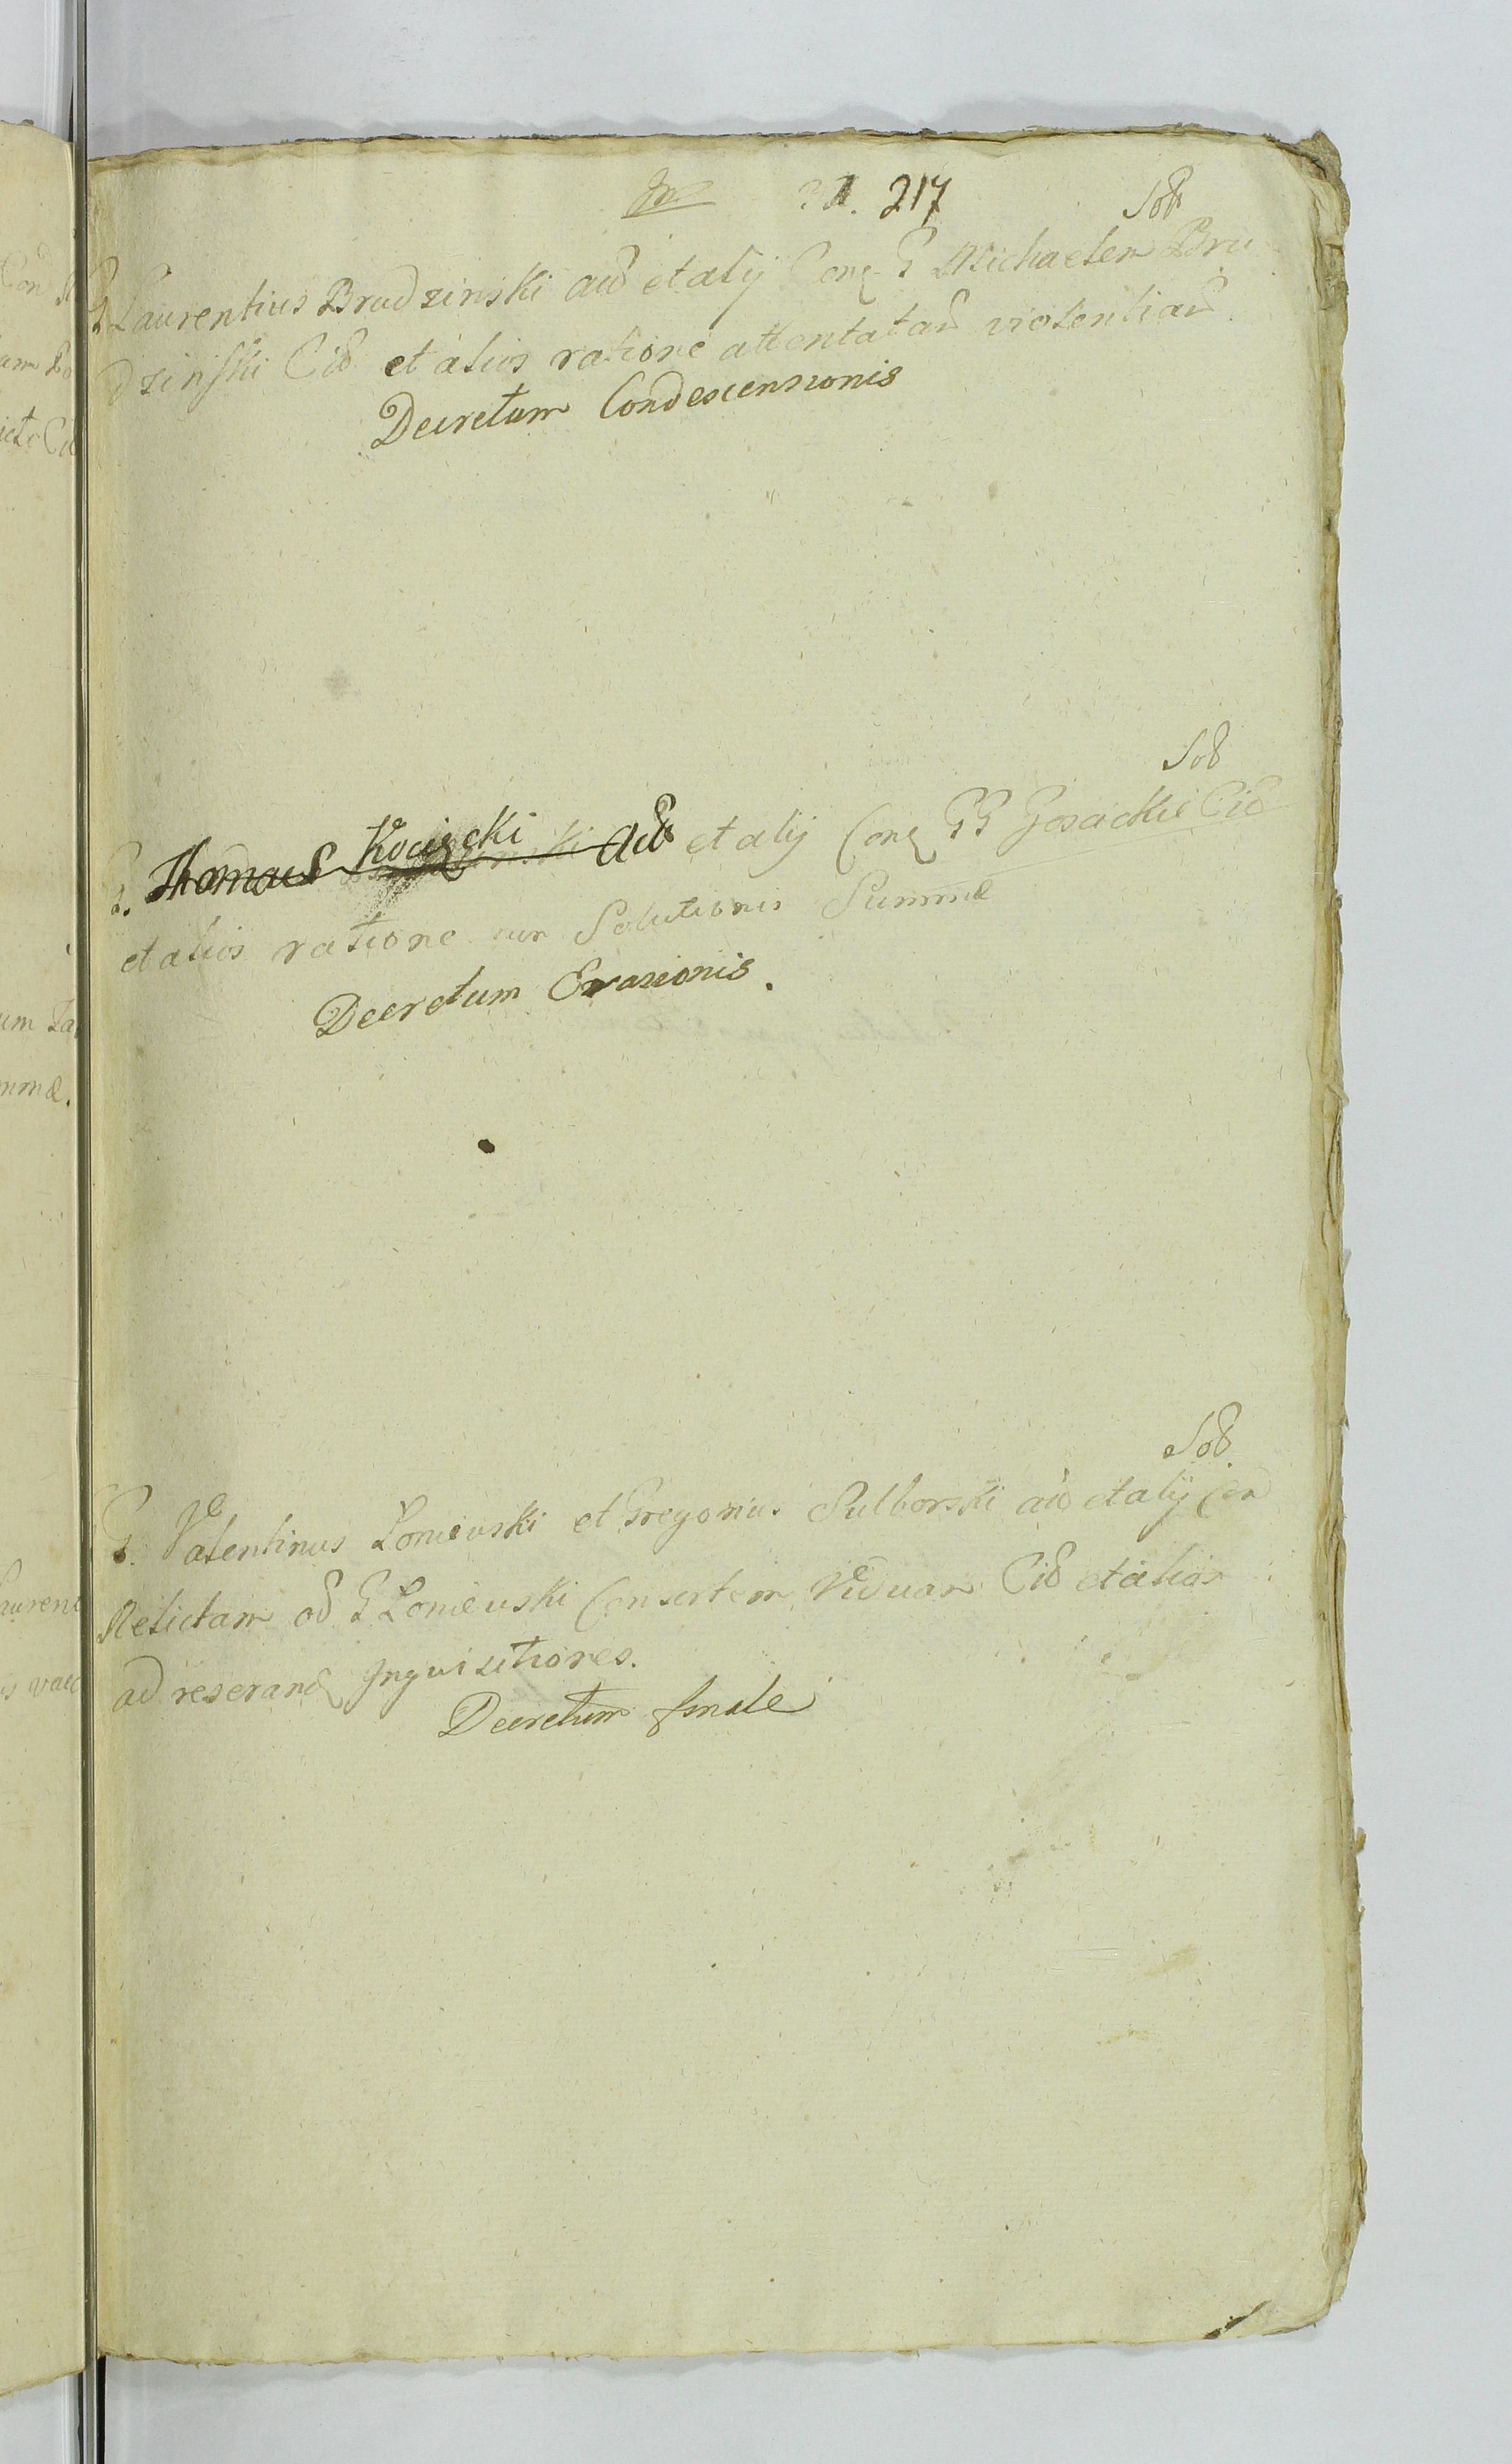 217
Sod
G Laurentius Brudzinski acd et alij Conq G Michaelem Bru
dzinski Cid et alios ratione attentatad violentiad
Decretum Condescensionis
Sod
G. Thomas Kocięcki Acd et alij Conq GG Gosackie Cid
et alios ratione non Solutionis Summæ
Decretum Evasionis.
Sod
G. Valentinus Łoniewski et Gregorius Sulborski acd et alij Con
Relictam od G Łoniewski Consortem Viduam Cid et alios
ad reserand Inquisitiones.
Decretum finale